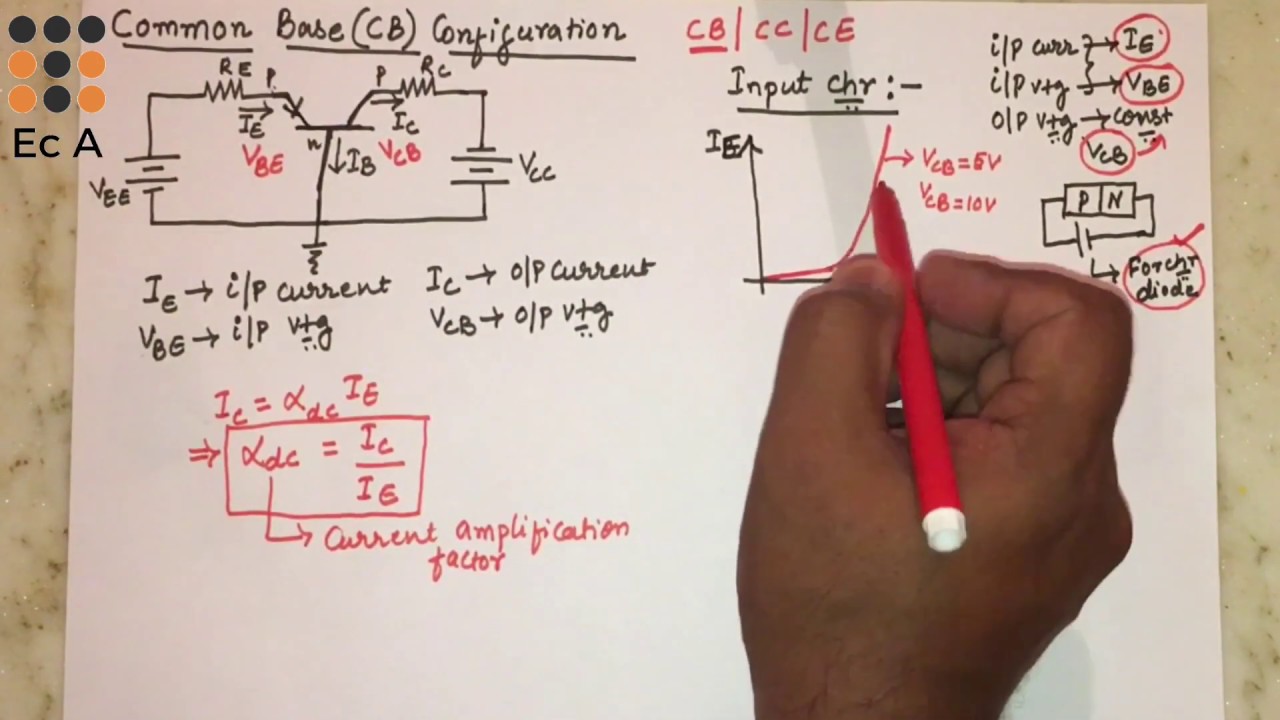 Common Base (CB) Configuration
RE
P
P
RC
IE
IC
VBE
n
VCB
IB
VEE
VCC
IE → i/P current
VBE → i/P vtg
IC → O/P current
VCB → O/P vtg
IC = αdc IE
⇒ αdc = IC/IE
Current amplification factor
CB | CC | CE
Input chr :-
IE
VCB = 5V
VCB = 10V
i/P curr → IE
i/P vtg → VBE
O/P vtg → const
VCB
P N
For chr diode
Ec A